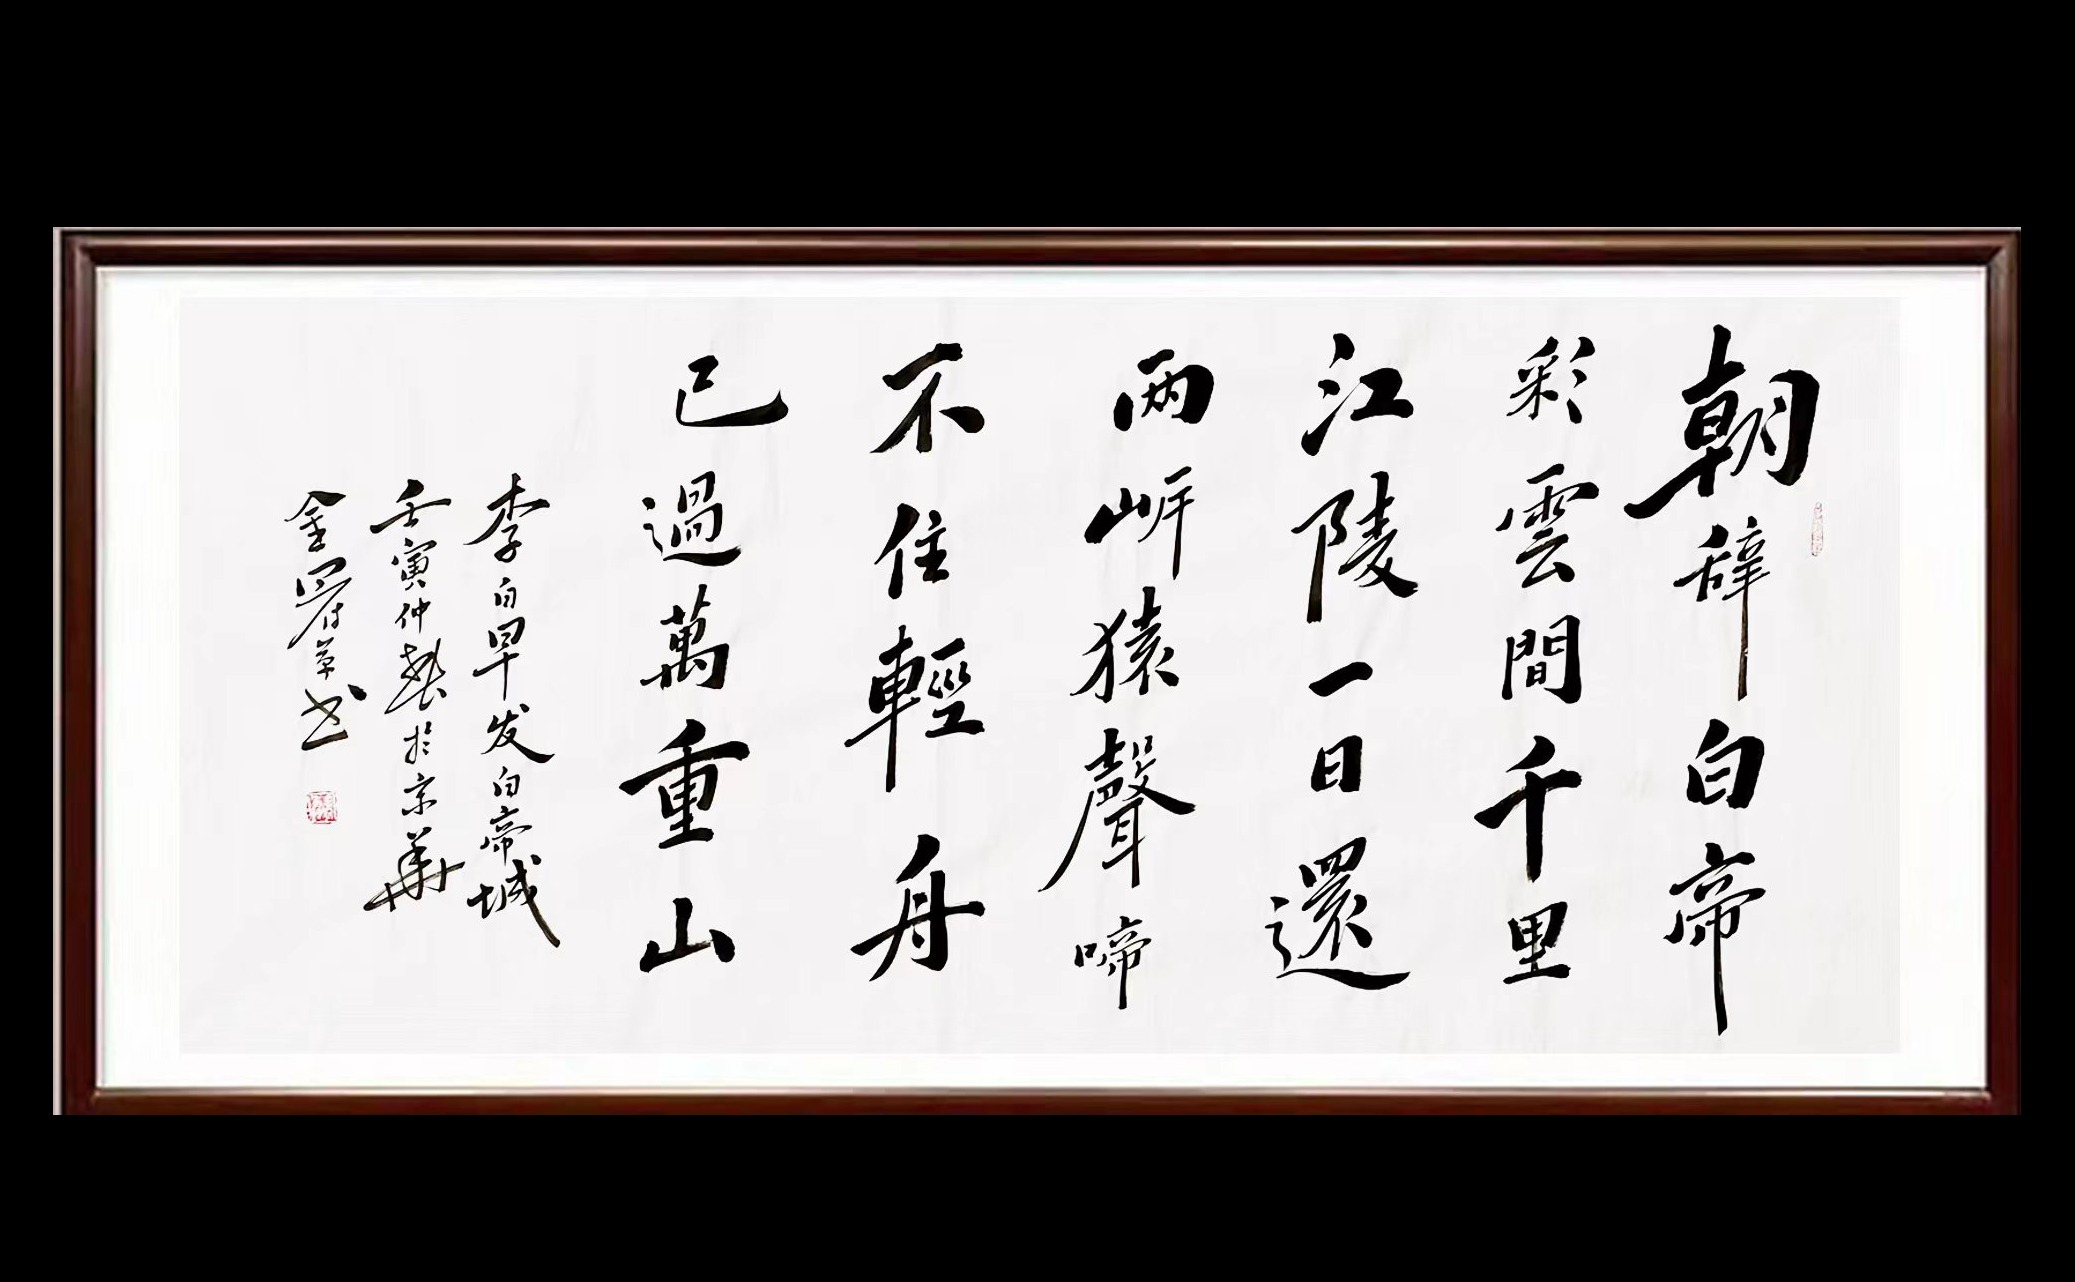 朝辞白帝
彩雲間千里
江陵一日還
兩岍猿聲啼
不住輕舟
已過萬重山
李白早发白帝城
壬寅仲春於京華
金书